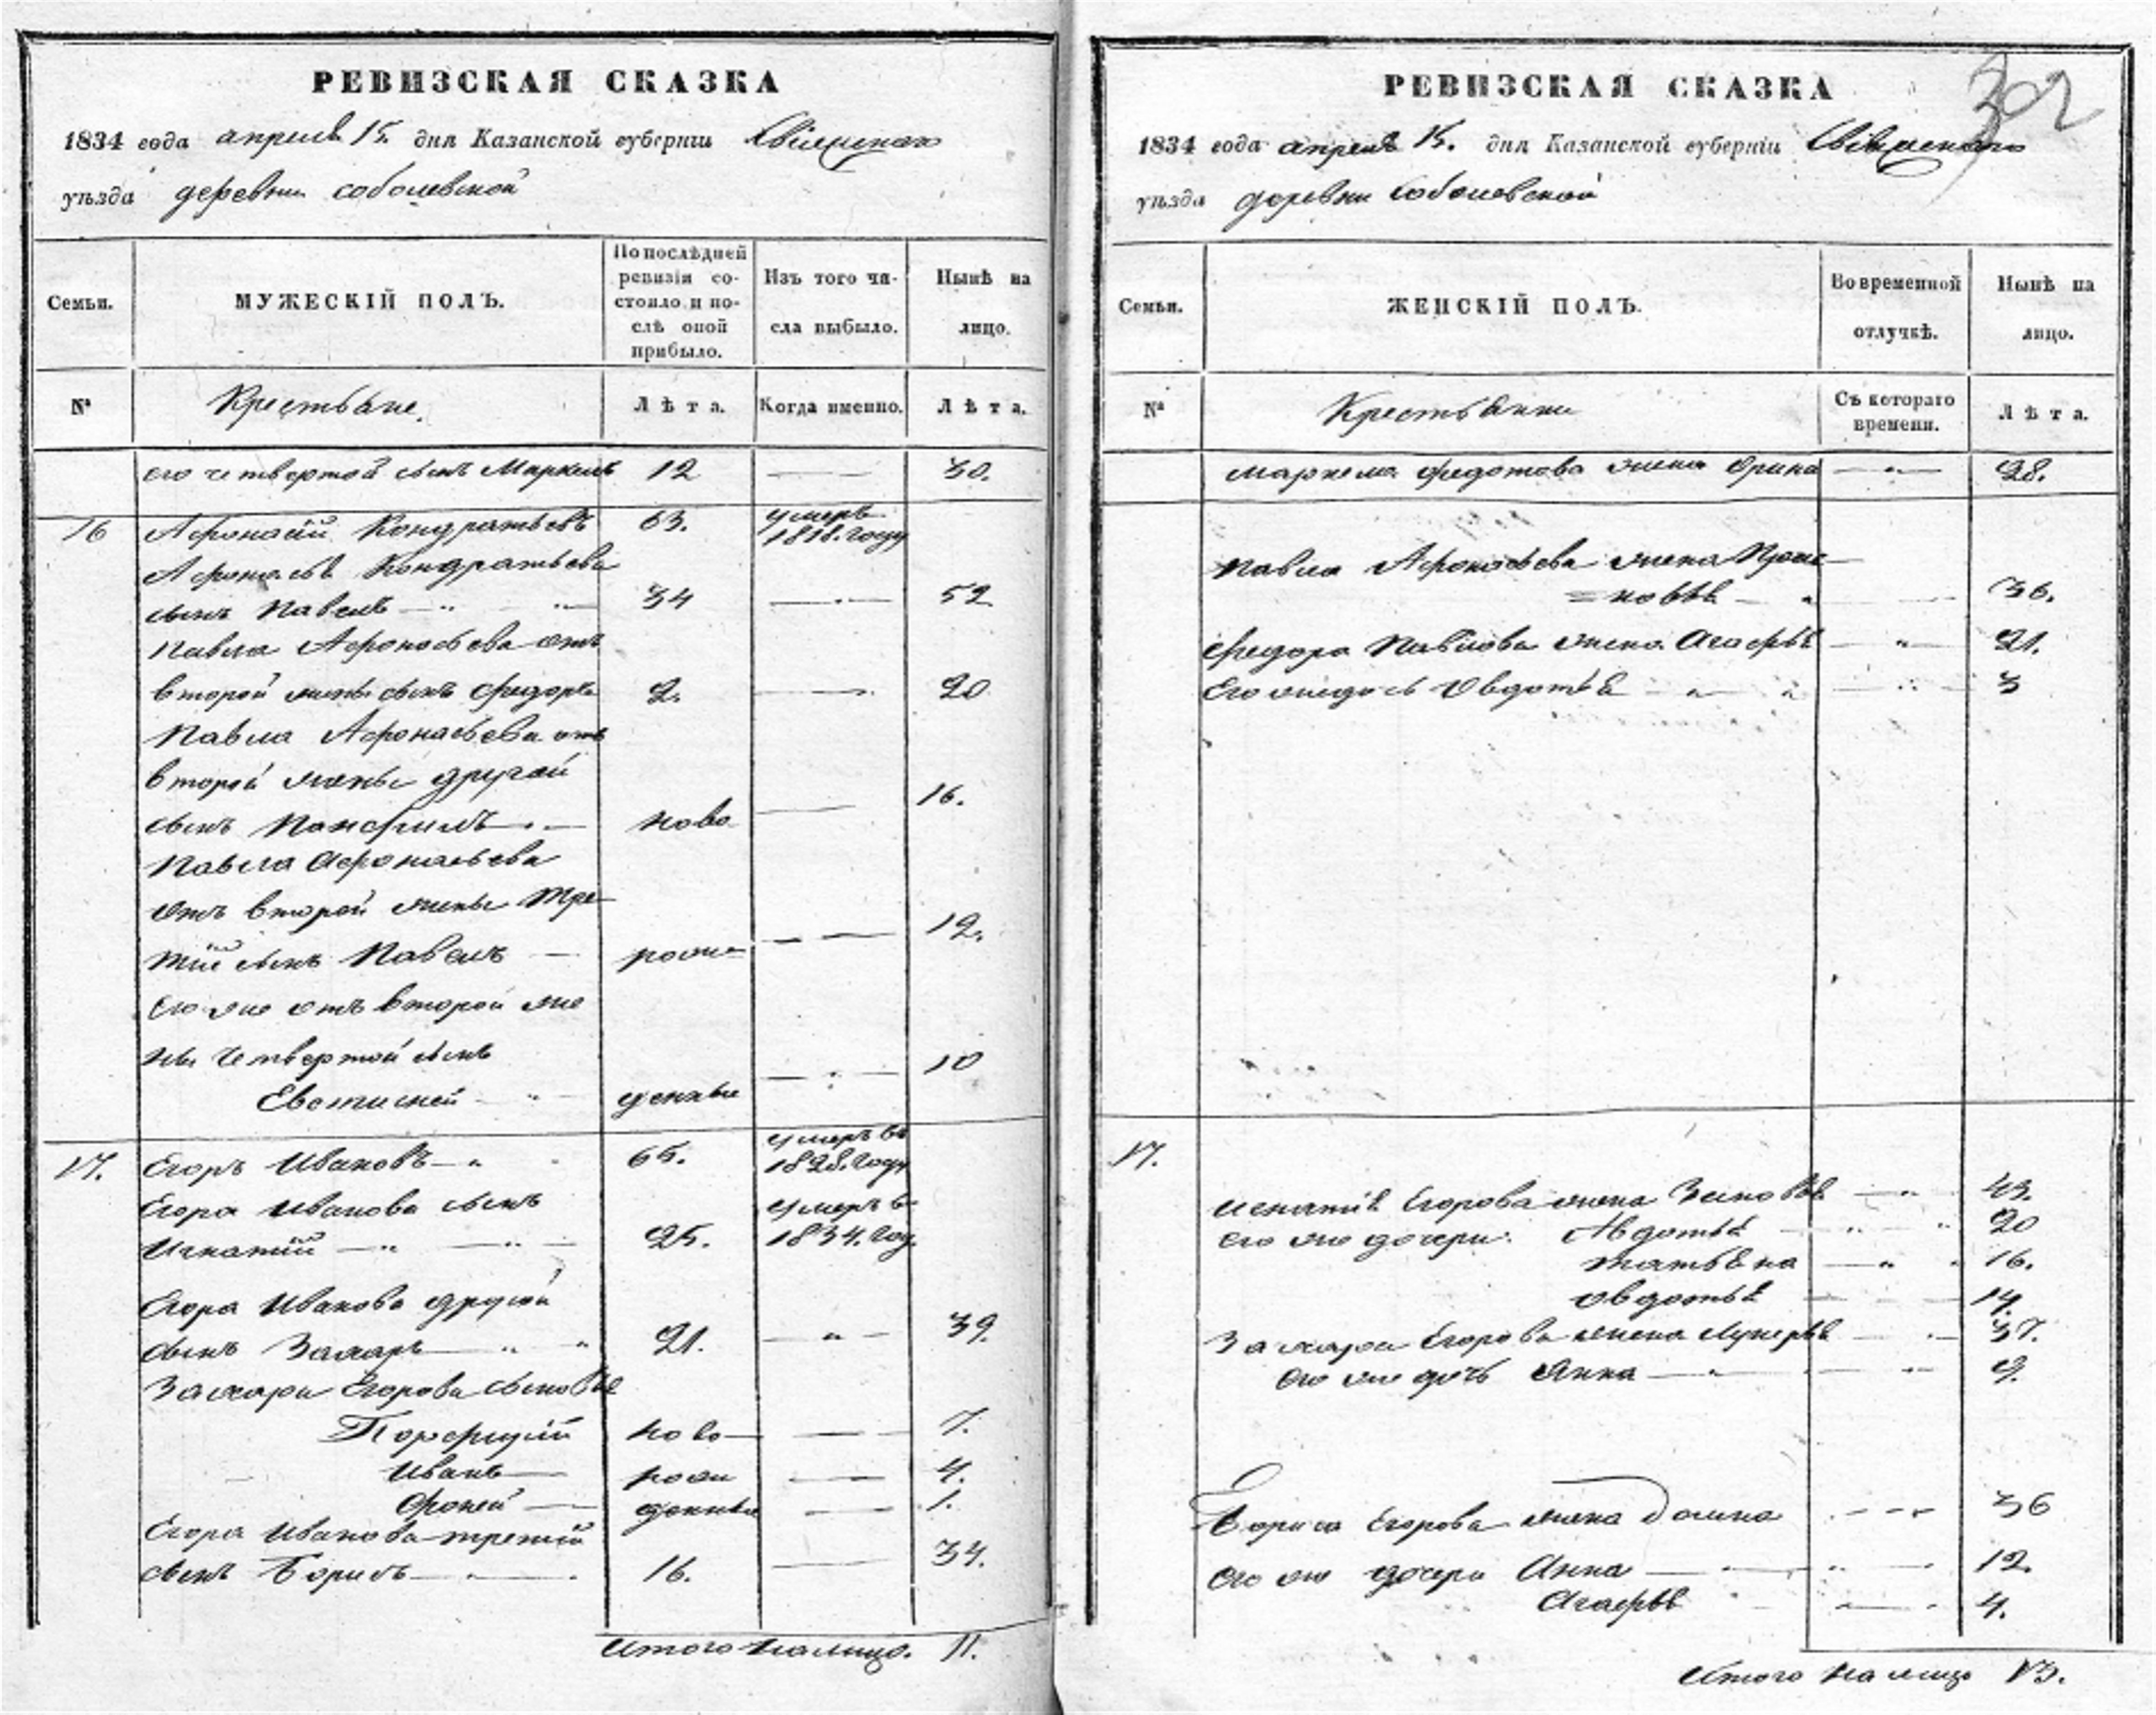 РЕВИЗСКАЯ СКАЗКА
1834 года апреля 15. дня Казанской губернiи Свіяжскаго
уѣзда деревни соболевской
Семьи.
МУЖЕСКIЙ ПОЛЪ.
По послѣдней ревизiи состояло и послѣ оной прибыло.
Изъ того числа выбыло.
Нынѣ на лицо.
№
Крестьяне.
Лѣта.
Когда именно.
Лѣта.
его четвертой сынъ Маркелъ 12 30.
16 Афонасiй Кондратьевъ 63. умеръ 1818. году
Афонасья Кондратьева
сынъ Павелъ 34 52
Павла Афонасьева отъ
второй жены сынъ Федоръ 2. 20
Павла Афонасьева отъ
второй жены другой
сынъ Панфилъ ново 16.
Павла Афонасьева
отъ второй жены тре
тiй сынъ Павелъ рож 12.
его же отъ второй же
ны четвертой сынъ
Евстигней денные 10
17. Егоръ Ивановъ 65. умеръ въ 1828. году
Егора Иванова сынъ
Игнатiй 25. умеръ в 1834. год.
Егора Иванова другой
сынъ Захаръ 21. 39.
Захара Егорова сыновья
Порфирiй ново 7.
Иванъ рож 4.
Фокей денные 1.
Егора Иванова третiй
сынъ Борисъ 16. 34.
Итого налицо. 11.
302
РЕВИЗСКАЯ СКАЗКА
1834 года апреля 15. дня Казанской губернiи Свіяжскаго
уѣзда деревни соболевской
Семьи.
ЖЕНСКIЙ ПОЛЪ.
Во временной отлучкѣ.
Нынѣ на лицо.
№
Крестьянки
Съ котораго времени.
Лѣта.
Маркела федотова жена Орина 28.
Павла Афонасьева жена Прас
ковья 36.
Федора Павлова жена Агафья 21.
Его же дочь Овдотья 3
17.
Игнатiя Егорова жена Зиновья 43.
его же дочери: Авдотья 20
татьяна 16.
Овдотья 14.
Захара Егорова жена Лукерья 37.
его же дочь Анна 9.
Бориса Егорова жена Домна 36
его же дочери Анна 12.
Агафья 4.
Итого на лицо 13.